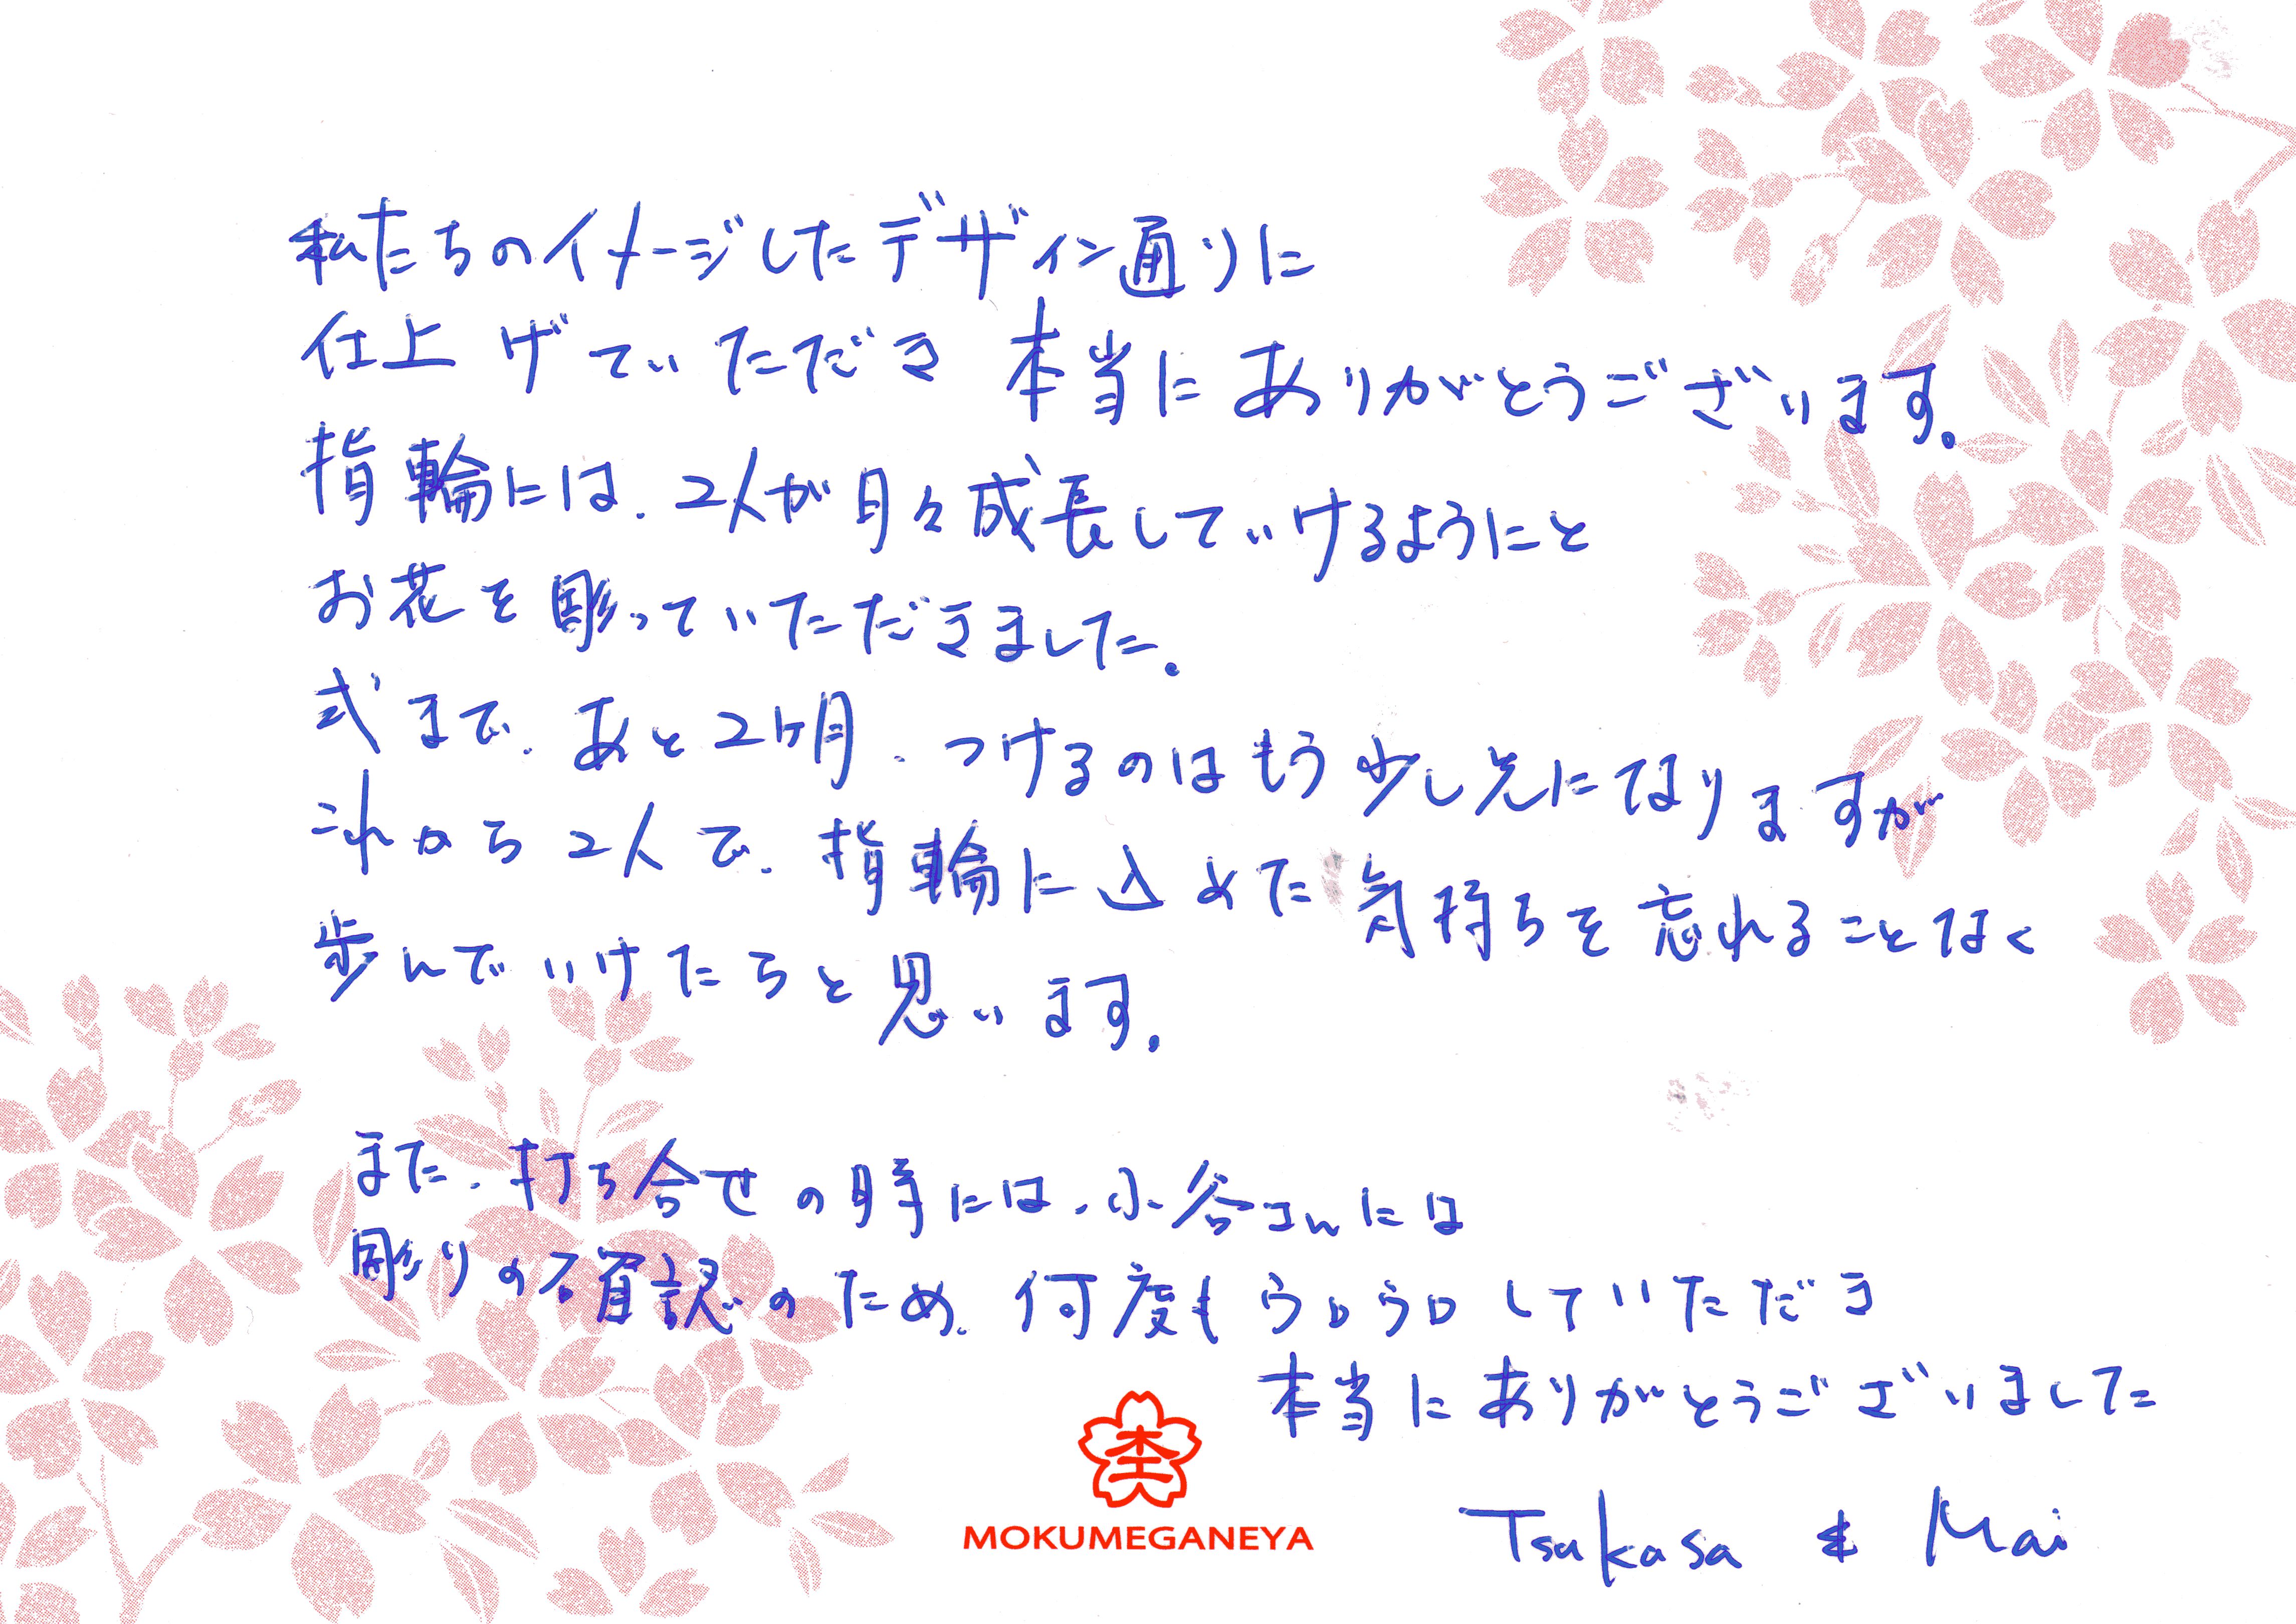 私たちのイメージしたデザイン通りに
仕上げていただき 本当にありがとうございます。
指輪には、2人が日々成長していけるようにと
お花を彫っていただきました。
式まで、あと2ケ月、つけるのはもう少し先になりますが
これから2人で、指輪に込めた気持ちを忘れることなく
歩んでいけたらと思います。
また、打ち合せの時には、小谷さんには
彫りの確認のため、何度もウロウロしていただき
本当にありがとうございました
杢
MOKUMEGANEYA
Tsukasa & Mai